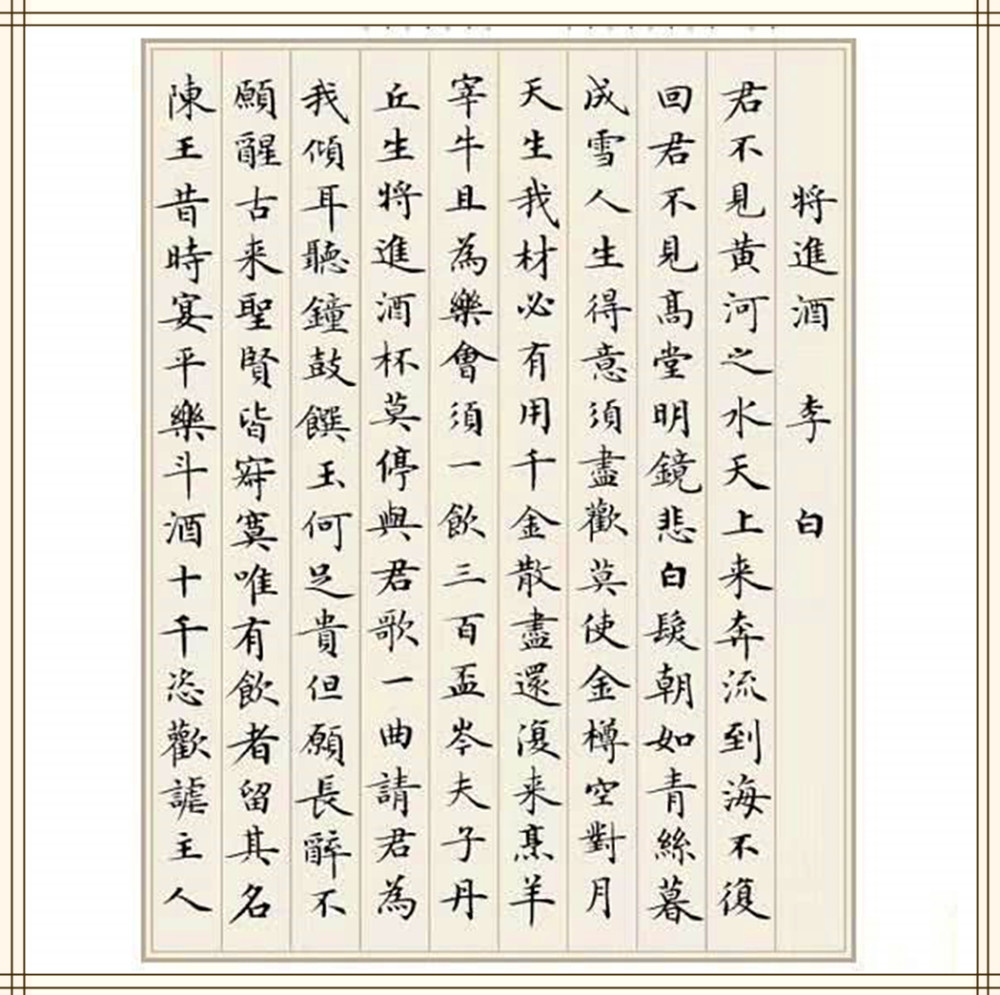 將進酒 李白
君不見黄河之水天上来奔流到海不復
回君不見高堂明鏡悲白髮朝如青絲暮
成雪人生得意須盡歡莫使金樽空對月
天生我材必有用千金散盡還復来烹羊
宰牛且為樂會須一飲三百盃岑夫子丹
丘生將進酒杯莫停與君歌一曲請君為
我傾耳聽鐘鼓饌玉何足貴但願長醉不
願醒古来聖賢皆寂寞唯有飲者留其名
陳王昔時宴平樂斗酒十千恣歡謔主人